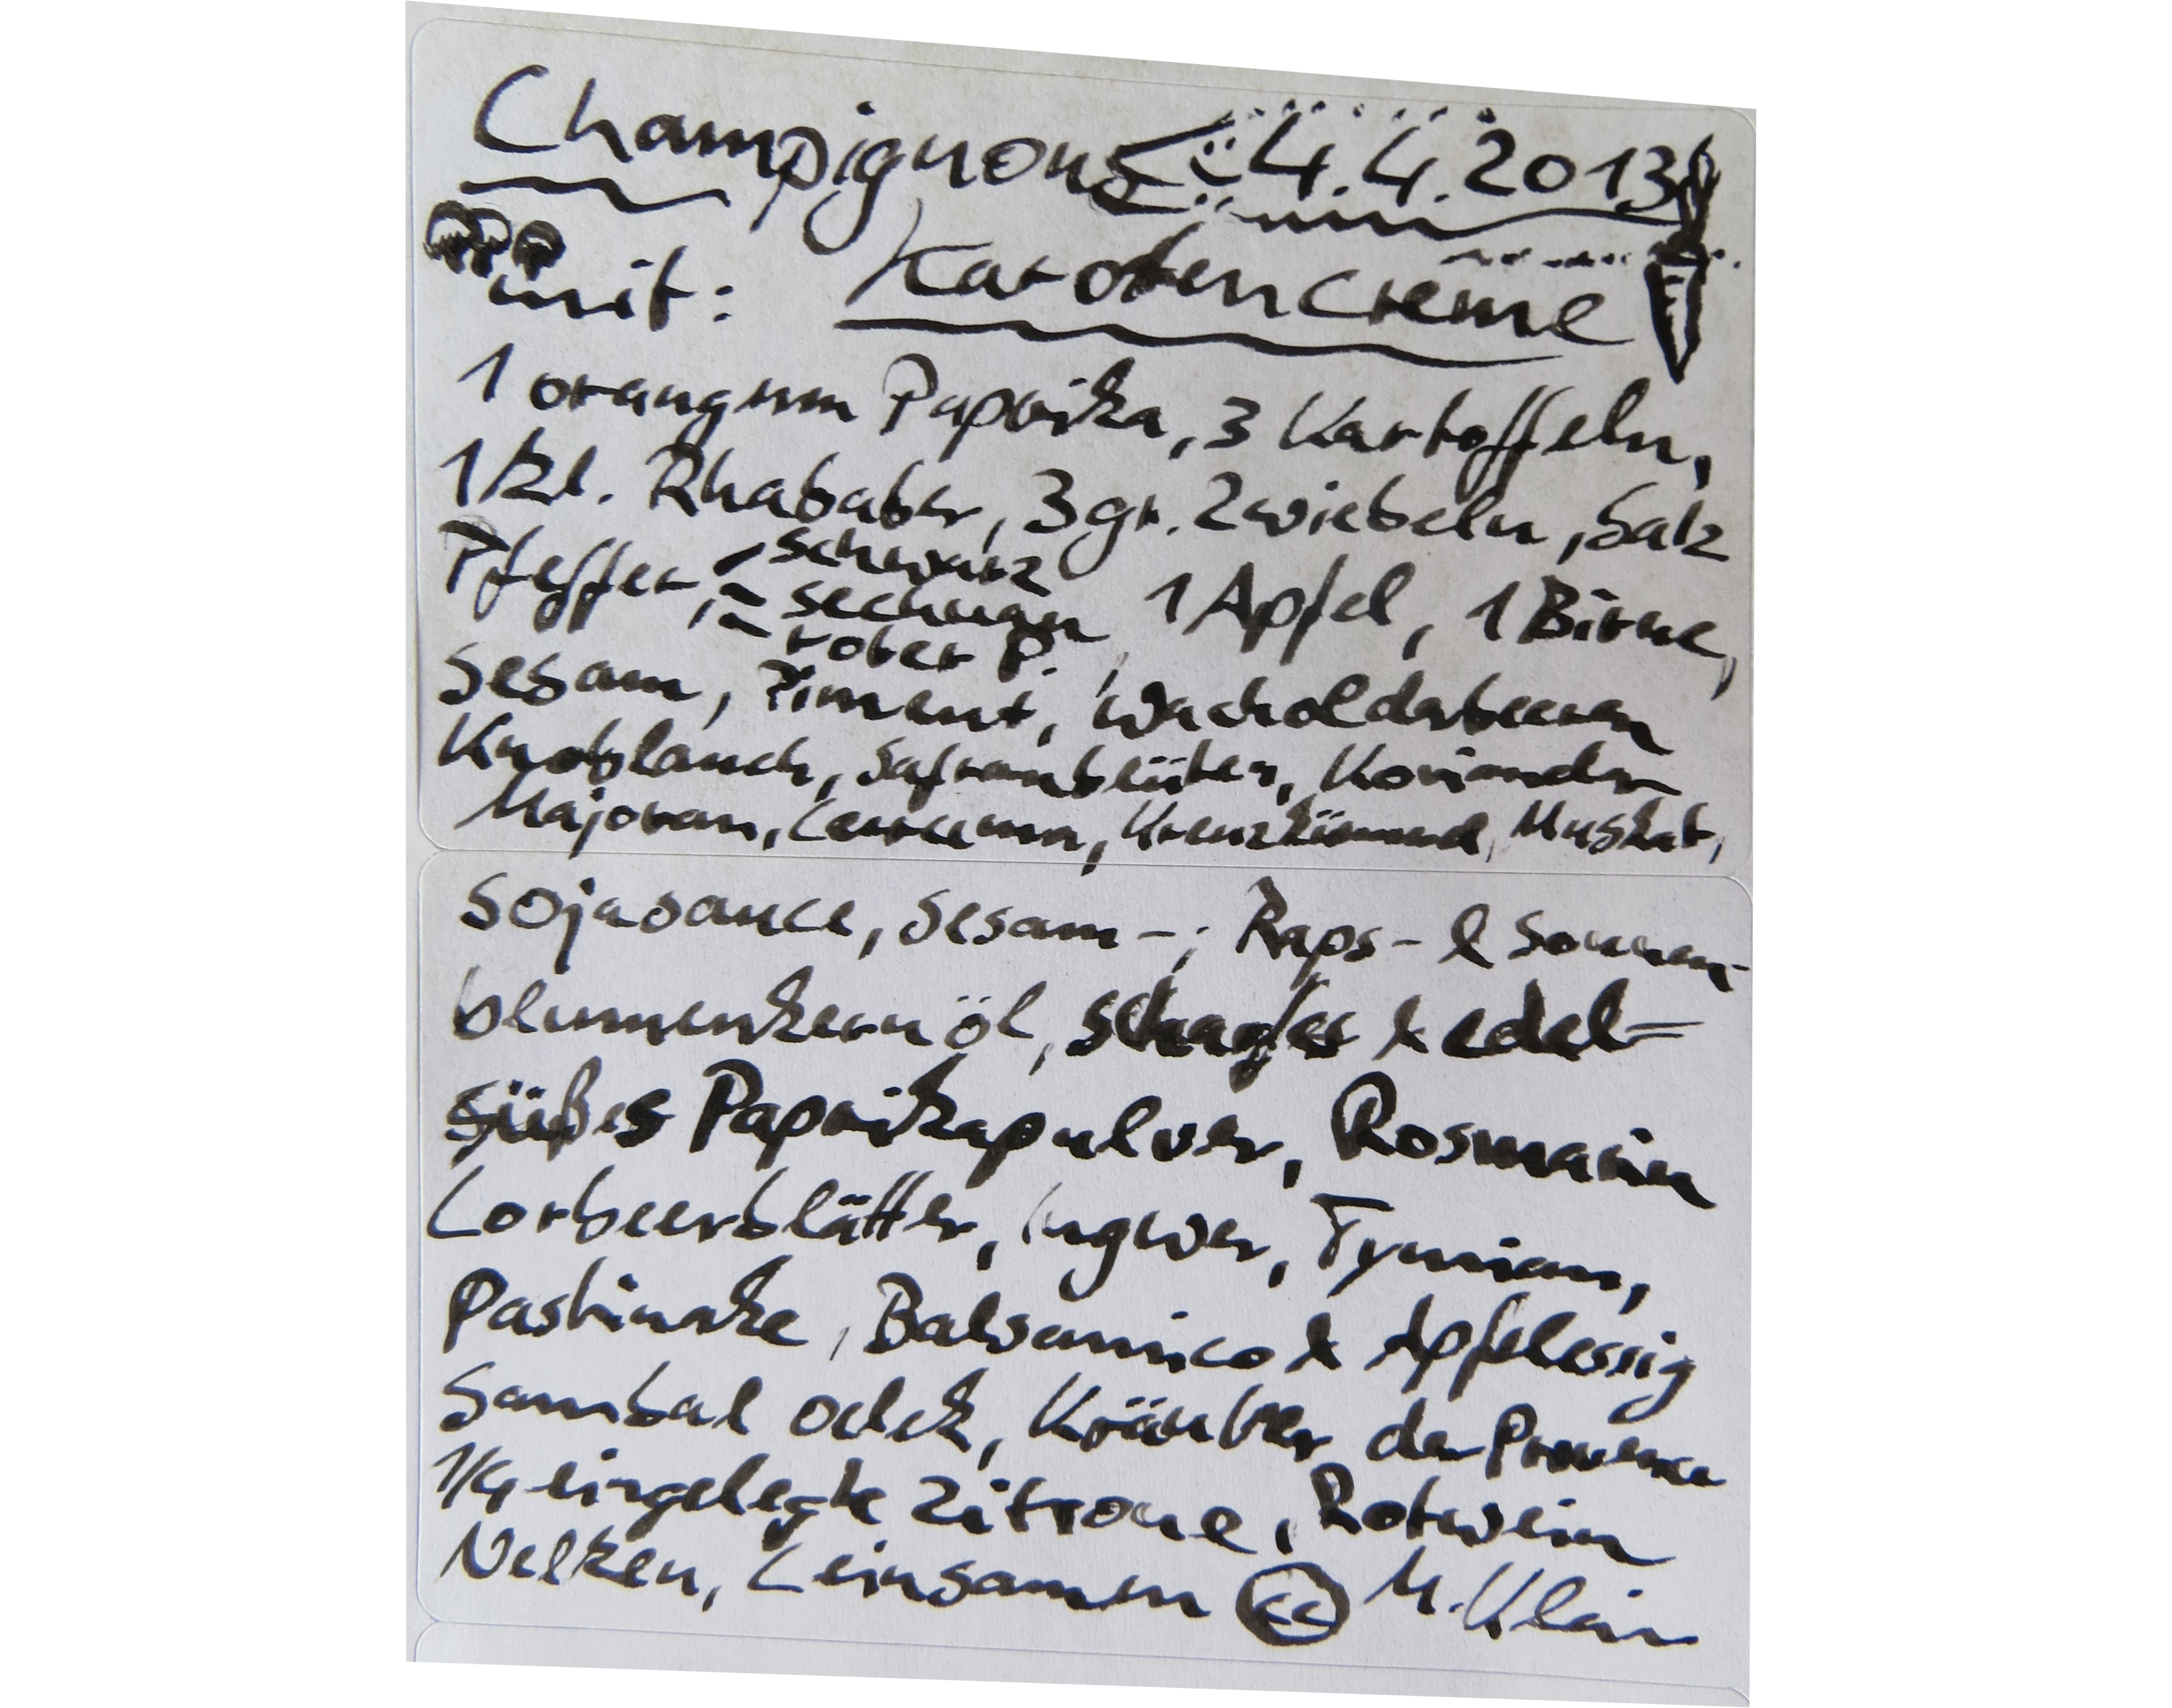 Champignons 4.4.2013
mit: Karottencreme
1 orangnen Paprika, 3 Kartoffeln,
1 kl. Rhababer, 3 gr. Zwiebeln, Salz
Pfeffer, - schwarz
- sechuan 1 Apfel, 1 Birne,
- roter P.,
Sesam, Piment, Wacholderbeeren
Knoblauch, Safranblüten, Koriander
Majoran, Curcuma, Kreuzkümmel, Muskat,
Sojasauce, Sesam-, Raps- & Sonnen-
blumenkernöl, scharfes & edel=
süßes Paprikapulver, Rosmarin
Lorbeerblätter, Ingwer, Tymian,
Pastinake, Balsamico & Apfelessig
Sambal Oelek, Kräuter der Provence
1/4 eingelegte Zitrone, Rotwein
Nelken, Leinsamen M. Klein